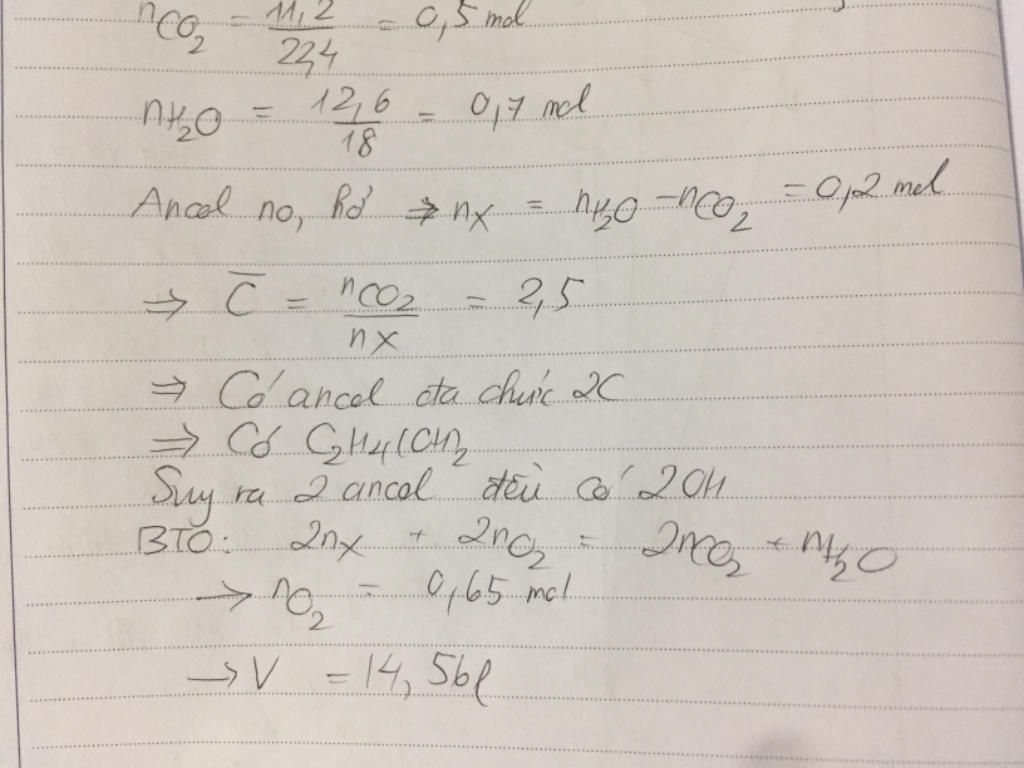 nCO2 = 11,2/22,4 = 0,5 mol
nH2O = 12,6/18 = 0,7 mol
Ancol no, hở => nX = nH2O - nCO2 = 0,2 mol
=> C̅ = nCO2/nX = 2,5
=> Có ancol đa chức 2C
=> Có C2H4(OH)2
Suy ra 2 ancol đều có 2OH
BTO: 2nX + 2nO2 = 2nCO2 + nH2O
→ nO2 = 0,65 mol
→ V = 14,56l